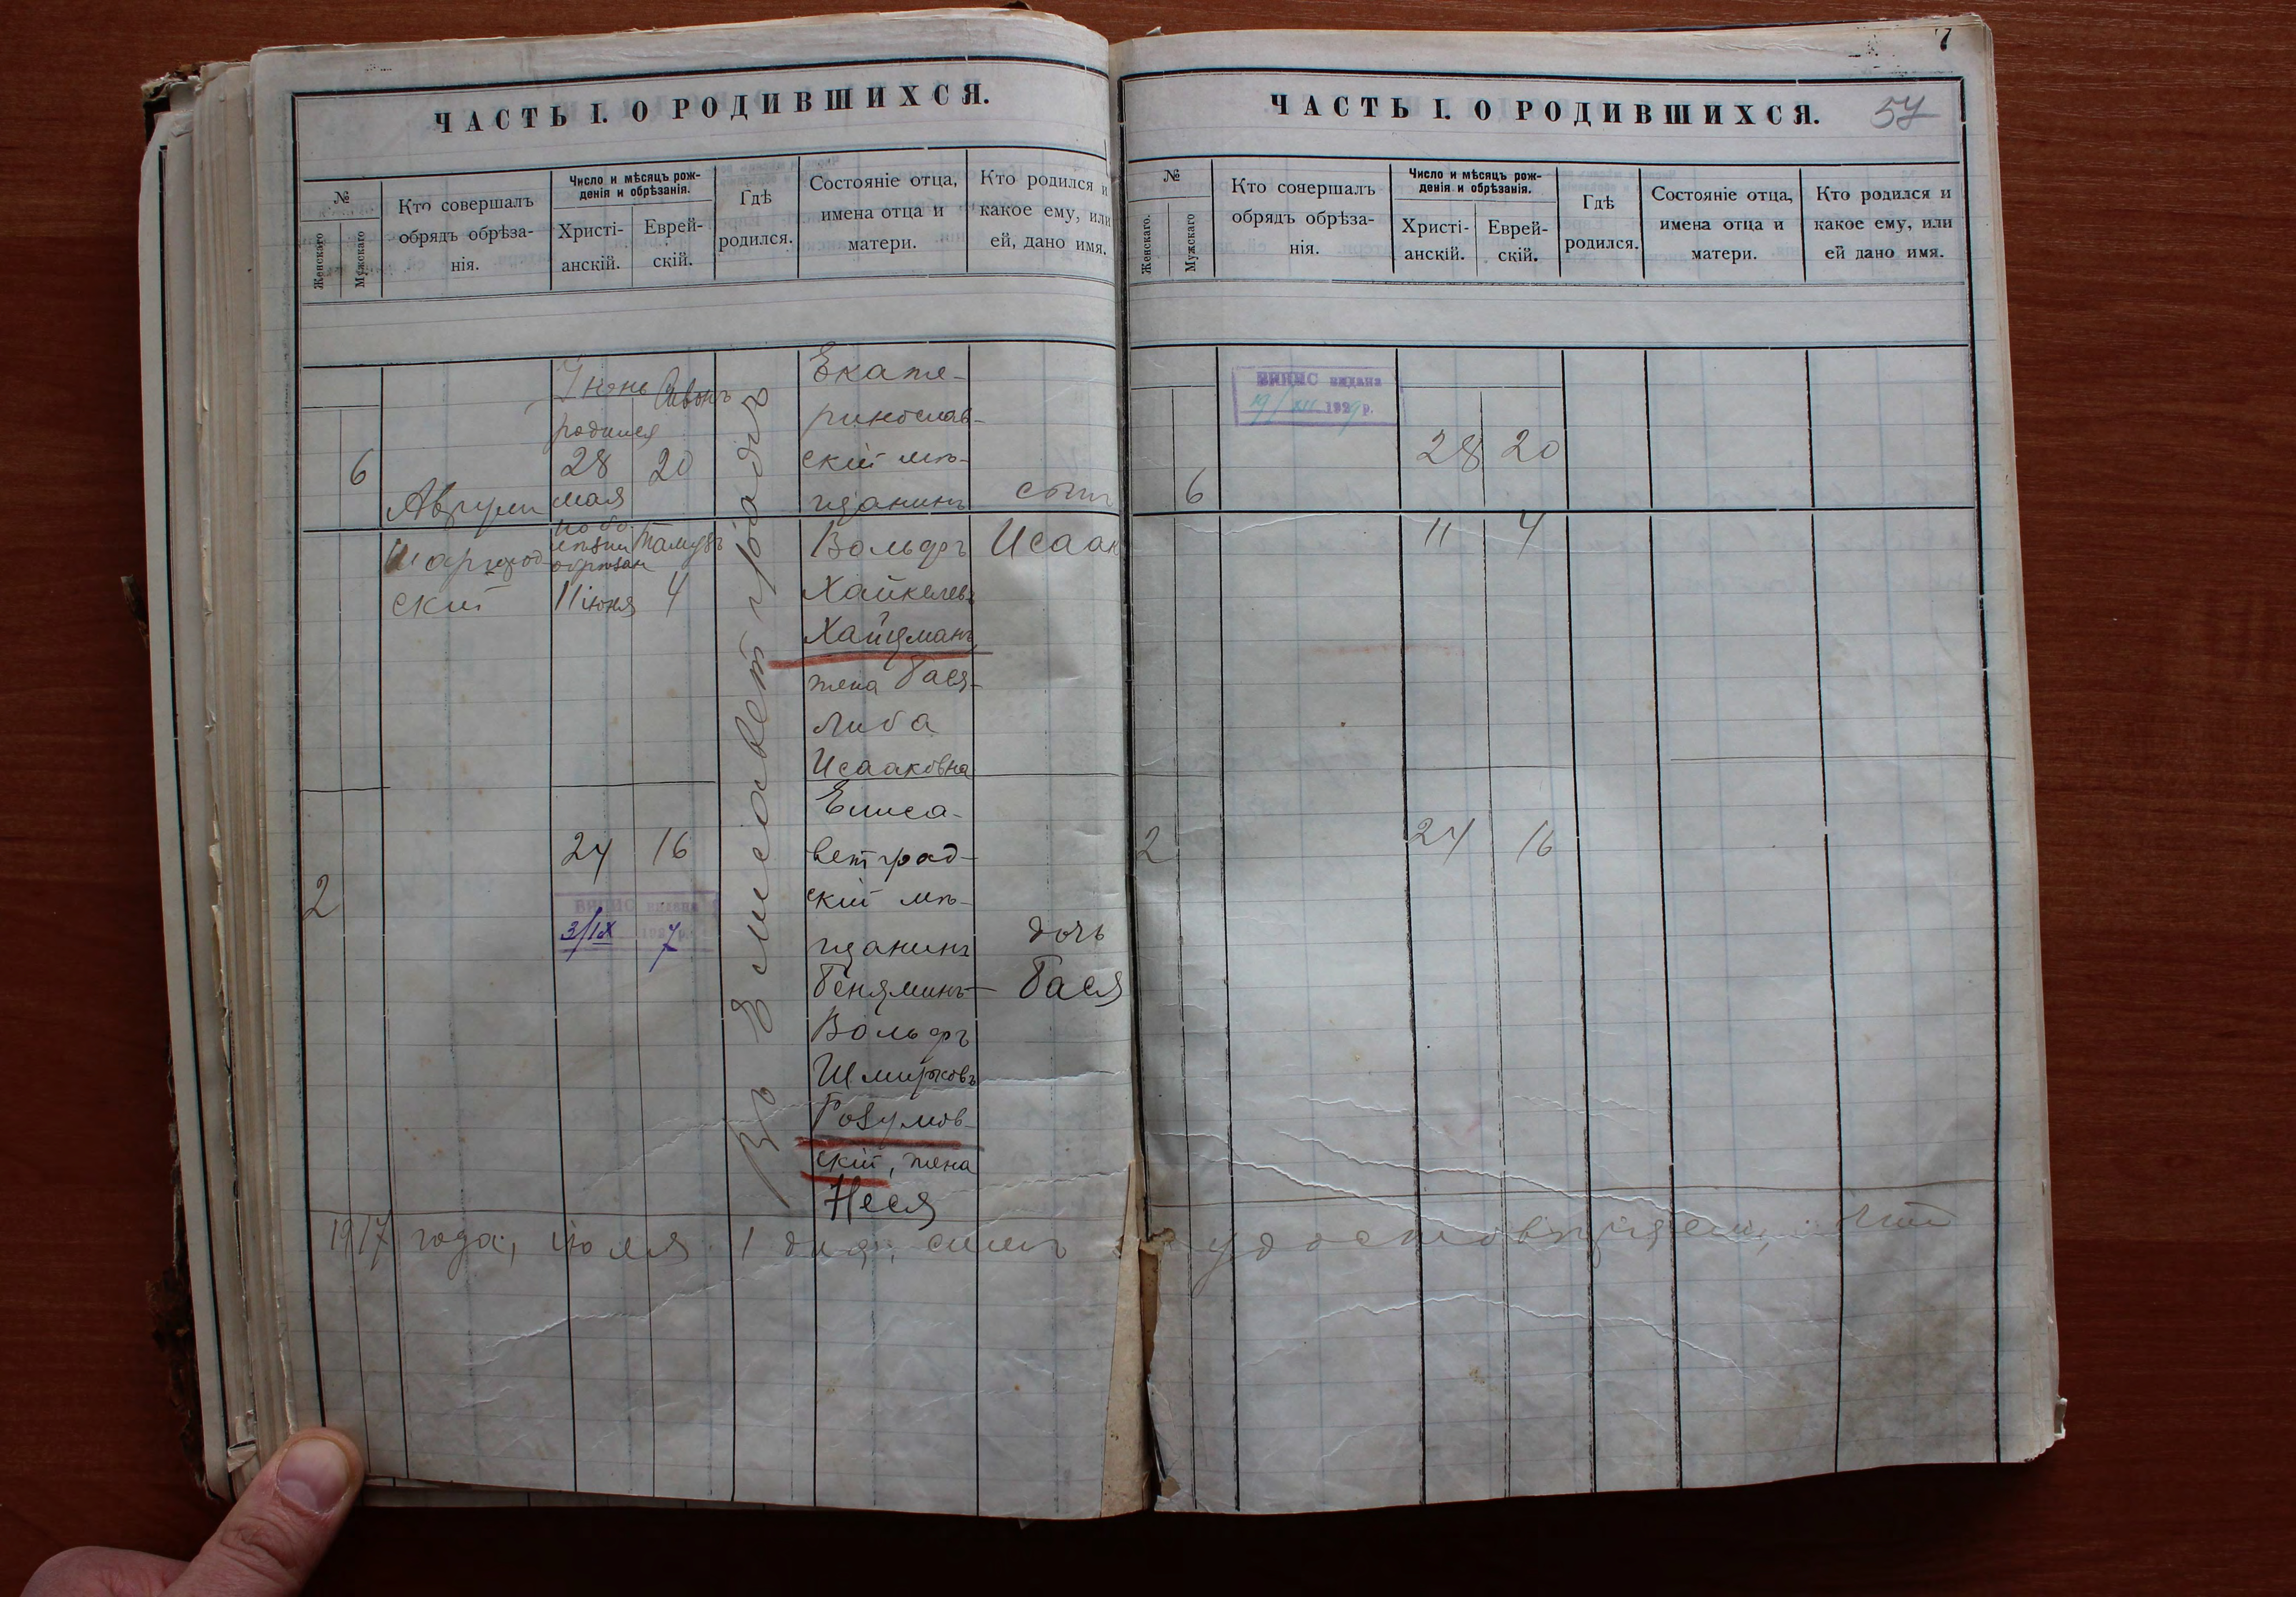 7
ЧАСТЬ I. О РОДИВШИХСЯ.
№
Женскаго
Мужскаго
Кто совершалъ
обрядъ обрѣза-
нія.
Число и мѣсяцъ рож-
денія и обрѣзанія.
Христі-
анскій.
Еврей-
скій.
Гдѣ
родился.
Состояніе отца,
имена отца и
матери.
Кто родился и
какое ему, или
ей, дано имя.
6
Аврум
Шаргород
ский
Июнь Сивонъ
родился
28 20
мая
по бо
лѣзни Тамузъ
обрѣзан
11 июня 4
Въ Елисаветградѣ
Екате-
ринослав-
скій мѣ-
щанинъ
Вольфъ
Хайкелевъ
Хайцманъ
жена Бася-
Либа
Исааковна
сынъ
Исаак
2
24 16
ВИПИС видана
3/IX 1927 р.
Елиса-
ветград-
скій мѣ-
щанинъ
Беняминъ-
Вольфъ
Шмирковъ
Розумов-
скій, жена
Неся
дочь
Бася
1917 года, июля 1 дня, симъ
ЧАСТЬ I. О РОДИВШИХСЯ.
57
№
Женскаго.
Мужскаго
Кто совершалъ
обрядъ обрѣза-
нія.
Число и мѣсяцъ рож-
денія и обрѣзанія.
Христі-
анскій.
Еврей-
скій.
Гдѣ
родился.
Состояніе отца,
имена отца и
матери.
Кто родился и
какое ему, или
ей дано имя.
ВИПИС видана
19/XII 1929 р.
6
28 20
11 4
2
24 16
удостовѣряемъ,